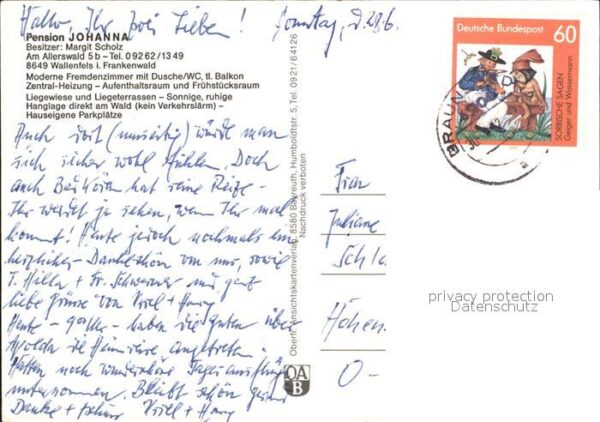 Hallo, Ihr zwei Lieben! Sonntag, d. 28.6.
Pension JOHANNA
Besitzer: Margit Scholz
Am Allerswald 5 b – Tel. 0 92 62 / 13 49
8649 Wallenfels i. Frankenwald
Moderne Fremdenzimmer mit Dusche/WC, tl. Balkon
Zentral-Heizung – Aufenthaltsraum und Frühstücksraum
Liegewiese und Liegeterrassen – Sonnige, ruhige
Hanglage direkt am Wald (kein Verkehrslärm) –
Hauseigene Parkplätze
Auch dort (umseitig) würde man
sich sicher wohl fühlen. Doch
auch hat seine Reize –
Ihr werdet ja sehen, wenn Ihr mal
kommt! Heute jedoch nochmals ein
herzliches Dankeschön von uns, sowie
T. Hilla + Fr. und ganz
liebe Grüsse von
Heute – – haben die guten über
Apolda die Heimreise angetreten.
Hatten noch wunderbare Tagesausflüge
unternommen. Bleibt schön gesund
Danke + tschüss
Oberfr. Ansichtskartenverlag, 8580 Bayreuth, Humboldtstr. 5, Tel. 0921/64126
Nachdruck verboten
OA
B
Deutsche Bundespost 60
SORBISCHE SAGEN
Geiger und Wassermann
BRAUN
Frau
Juliane
Schla
Höhen
O-
privacy protection
Datenschutz